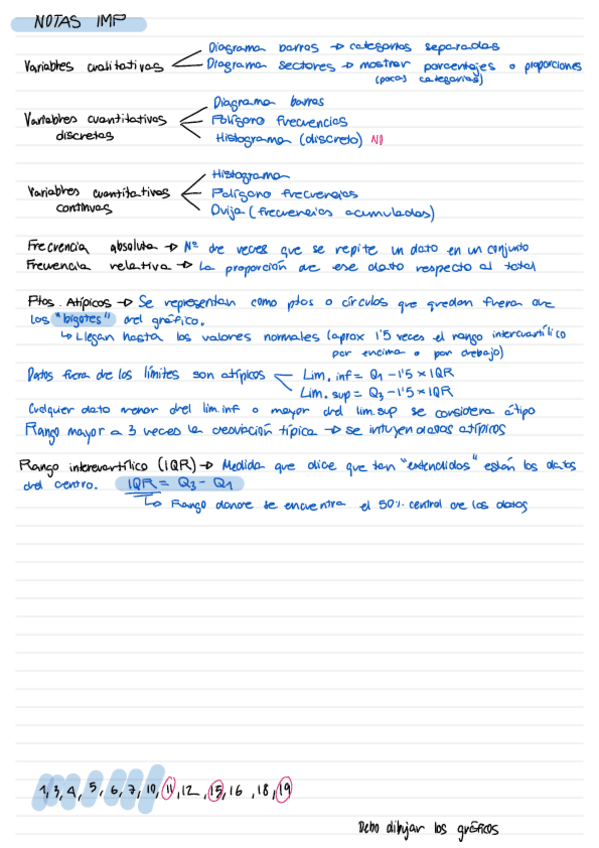 NOTAS IMP
Variables cualitativas
Diagrama barras → categorias separadas
Diagrama sectores → mostrar porcentajes o proporciones
(pocas categorias)
Variables cuantitativas
discretas
Diagrama barras
Polígono frecuencias
Histograma (discreto) NO
Variables cuantitativas
continuas
Histograma
Polígono frecuencias
Ovija (frecuencias acumuladas)
Frecrencia absoluta → Nº de veces que se repite un dato en un conjunto
Frecuencia relativa → La proporción de ese dato respecto al total
Ptos. Atípicos → Se representan como ptos o círculos que quedan fuera de
los "bigotes" del gráfico.
↳ Llegan hasta los valores normales (aprox 1'5 veces el rango intercuartílico
por encima o por debajo)
Datos fuera de los límites son atípicos
Lim. inf = Q1 - 1'5 × IQR
Lim. sup = Q3 - 1'5 × IQR
Cualquier dato menor del lim.inf o mayor del lim.sup se considera átipo
Rango mayor a 3 veces la desviación típica → se intuyen datos atípicos
Rango intercuartílico (IQR) → Medida que dice que tan "extendidos" están los datos
del centro. IQR = Q3 - Q1
↳ Rango donde se encuentra el 50% central de los datos
1, 3, 4, 5, 6, 7, 10, 11, 12, 15, 16, 18, 19
Debo dibujar los gráficos